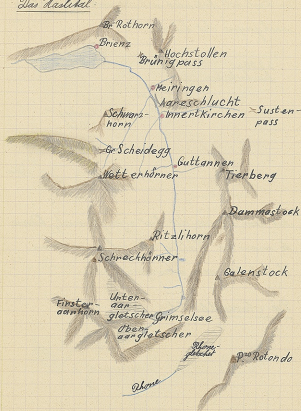 Das Haslital
Br. Rothorn
Brienz
Hochstollen
Brünigpass
Meiringen
Aareschlucht
Schwarz-
horn
Innertkirchen
Susten-
pass
Gr. Scheidegg
Guttannen
Wetterhörner
Tierberg
Dammastock
Ritzlihorn
Schreckhörner
Galenstock
Finster-
aarhorn
Unter-
aar-
gletscher
Grimselsee
Ober-
aargletscher
Rhone-
gletscher
Pzo Rotondo
Rhone